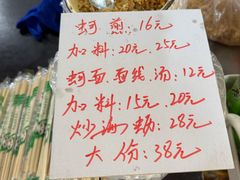 蚵煎:16元
加料:20元.25元
蚵面.面线.汤:12元
加料:15元.20元
炒海蛎:28元
大份:38元